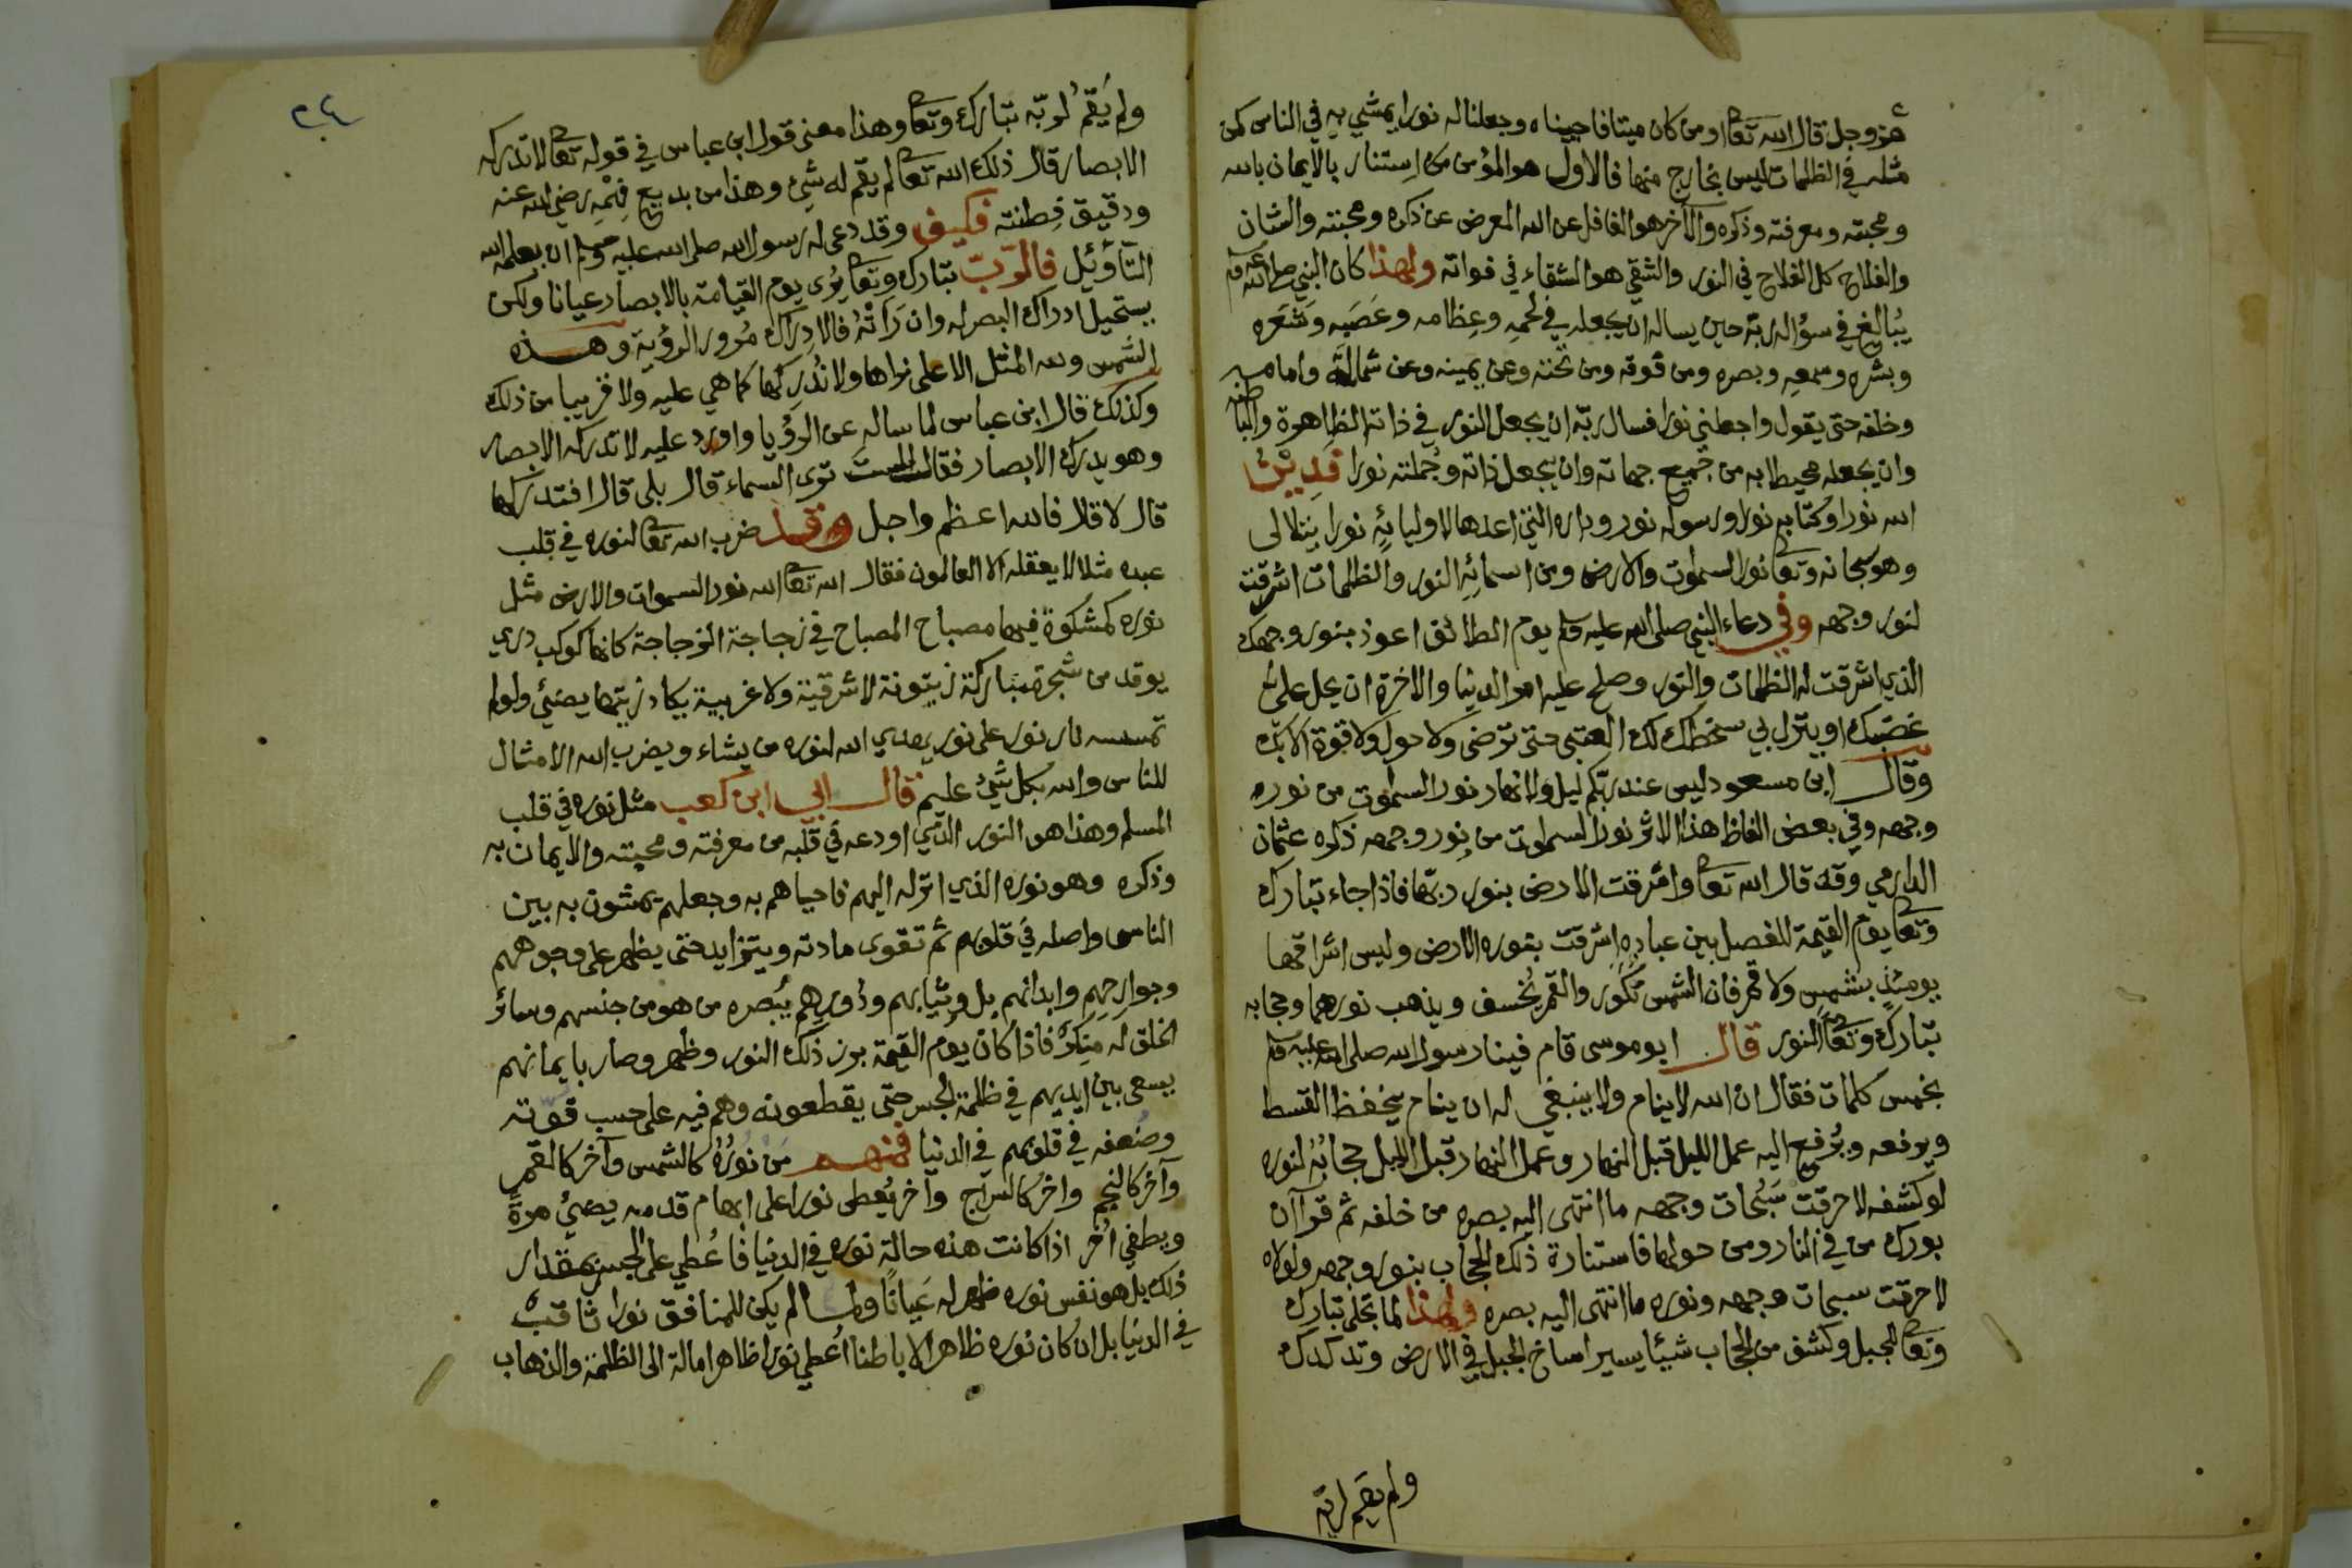 عز وجل قال الله تعا اومن كان ميتا فاحييناه وجعلنا له نورا يمشي به في الناس كمن
مثله في الظلمات ليس بخارج منها فالاول هو المؤمن من استنار بالايمان بالله
ومحبته ومعرفته وذكره والآخر هو الغافل عن الله المعرض عن ذكره ومحبته والشان
والفلاح كل الفلاح في النور والشقي هو الشقاء في فواته ولهذا كان النبي صلى الله عليه وسلم
يُبالغ في سؤاله ربّه حين يساله ان يجعله في لحمِه وعِظامه وعَصَبِه وشَعَره
وبشره وسمعِه وبصره ومن فوقه ومن تحته وعن يمينه وعن شماله وامامه
وخلفه حتى يقول واجعلني نورا فسال ربّه ان يجعل النور في ذاته الظاهرة والباطنه
وان يجعله محيطا به من جميع جهاته وان يجعل ذاته وجُملته نورا فدِيْنُ
الله نورا وكتابه نور ورسوله نور وداره التي اعدها لاوليائه نورا يتلالى
وهو سبحانه وتعا نور السموات والارض ومن اسمائِهِ النور والظلمات اشرقت
لنور وجهه وفي دعاء النبي صلى الله عليه وسلم يوم الطائف اعوذ بنور وجهك
الذي اشرقت له الظلمات والنور وصلح عليه امر الدنيا والاخرة ان يحل على
غضبك او ينزل بي سخطك لك العتبى حتى ترضى ولا حول ولا قوة الا بك
وقال ابن مسعود ليس عند ربّكم ليل ولا نهار نور السموات من نوره
وجهه وفي بعض الفاظ هذا الاثر نور السموات من نور وجهه ذكره عثمان
الدارمي وقد قال الله تعا واشرقت الارض بنور ربّها فاذا جاء تبارك
وتعا يوم القيمة للفصل بين عباده اشرقت بنوره الارض وليس اشراقها
يومئذٍ بشمسٍ ولا قمر فان الشمس تُكَوّر والقمر يُخسف ويذهب نورهما وحجابه
تبارك وتعا النور قال ابو موسى قام فينا رسول الله صلى الله عليه وسلم
بخمس كلمات فقال ان الله لا ينام ولا ينبغي له ان ينام يخفظ القسط
ويرفعه ويُرفع اليه عمل الليل قبل النهار وعمل النهار قبل الليل حجابُهُ لنوره
لو كشفه لاحرقت سَبُحات وجهه ما انتهى اليه بصره من خلقه ثم قرا ان
بورك من في النار ومن حولها فاستنارة ذلك الحجاب بنور وجهه ولولاه
لاحرقت سبحات وجهه ونوره ما انتهى اليه بصره ولهذا لما تجلى تبارك
وتعا للجبل وكشف من الحجاب شيئا يسيرا ساخ الجبل في الارض وتدكدك
ولم يقم لربّه
٢٤
ولم يَقُمْ لربّه تبارك وتعا وهذا معنى قول ابن عباس في قوله تعا لا تدركه
الابصار قال ذلك الله تعا لم يقم له شيئ وهذا من بديع فهْمِه رضي الله عنه
ودقيق فِطنته فكيف وقد دعى له رسول الله صلى الله عليه وسلم ان يعلمه الله
التأوئيل فالرّبّ تبارك وتعا يُرى يوم القيامة بالابصار عيانا ولكن
يستحيل ادراك البصر له وان رَاتْهُ فالادِراك مُرور الرؤية وهذه
الشمس ولله المثل الاعلى نراها ولا نُدركها كما هي عليه ولا قريبا من ذلك
وكذلك قال ابن عباس لما ساله عن الرؤيا واورد عليه لا تدركه الابصار
وهو يدرك الابصار فقال الست ترى السماء قال بلى قال افتدركها
قال لا قال فالله اعظم واجل وقد ضرب الله تعا لنوره في قلب
عبده مثلا لا يعقله الا العالمون فقال الله تعا الله نور السموات والارض مثل
نوره كمشكوة فيها مصباح المصباح في زجاجة الزجاجة كانها كوكب دري
يوقد من شجرة مباركة زيتونة لا شرقية ولا غربية يكاد زيتها يضيئ ولو لم
تمسسه نار نور على نور يهدي الله لنوره من يشاء ويضرب الله الامثال
للناس والله بكل شيئ عليم قال ابي ابن كعب مثل نوره في قلب
المسلم وهذا هو النور الذي اودعه في قلبه من معرفته ومحبته والايمان به
وذكره وهو نوره الذي انزله اليهم فاحياهم به وجعلهم يمشون به بين
الناس واصله في قلوبهم ثم تقوى مادته ويتزايد حتى يظهر على وجوههم
وجوارحِهِم وابدانهم بل وثيابهم ودُورِهِم يُبصره من هو من جنسهم وسائر
الخلق له منكرٌ فاذا كان يوم القيمة برز ذلك النور وظهر وصار بايمانهم
يسعى بين ايديهم في ظلمة الجسر حتى يقطعونه وهم فيه على حسب قوّته
وضُعفه في قلوبهم في الدنيا فمنهم مَن نُورُهُ كالشمس وآخر كالقمر
وآخر كالنجم واخر كالسراج وآخر يُعطى نورا على ابهام قدمه يضيئ مرةً
ويطفي اُخر اذا كانت هذه حالة نوره في الدنيا فاُعطي على الجسر بمقدار
ذلك بل هو نفس نوره ظهر له عَيانًا ولما لم يكن للمنافق نورا ثاقب
في الدنيا بل ان كان نوره ظاهرا لا باطنا اُعطي نورا ظاهرا ماله الى الظلمة والذهاب